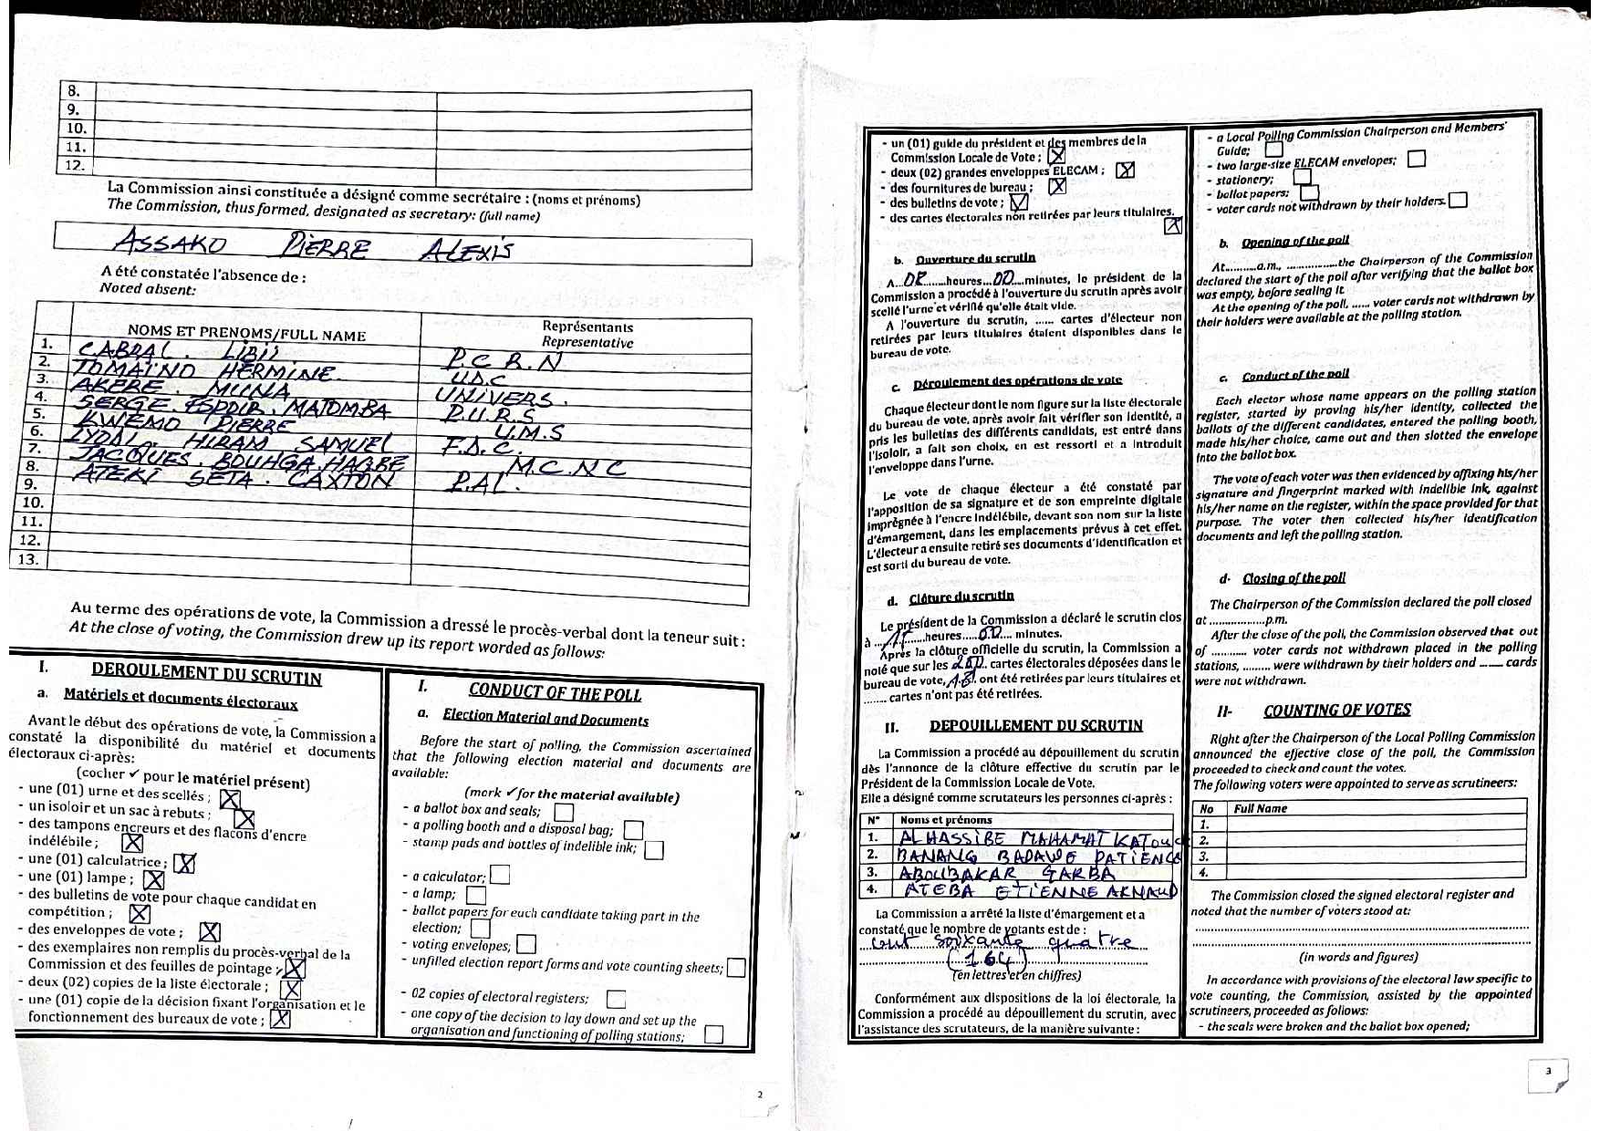 8.
9.
10.
11.
12.
La Commission ainsi constituée a désigné comme secrétaire : (noms et prénoms)
The Commission, thus formed, designated as secretary: (full name)
ASSAKO PIERRE ALEXIS
A été constatée l'absence de :
Noted absent:
NOMS ET PRENOMS/FULL NAME
Représentants
Representative
1. CABRAL LIBII P.C.R.N
2. TOMAÏNO HERMINE U.D.C
3. AKERE MUNA UNIVERS.
4. SERGE ESPOIR MATOMBA P.U.R.S
5. KWEMO PIERRE U.M.S
6. IYODI HIRAM SAMUEL F.D.C.
7. JACQUES BOUHGA HAGBE M.C.N.C
8. ATEKI SETA CAXTON P.A.L.
9.
10.
11.
12.
13.
Au terme des opérations de vote, la Commission a dressé le procès-verbal dont la teneur suit :
At the close of voting, the Commission drew up its report worded as follows:
I. DEROULEMENT DU SCRUTIN
a. Matériels et documents électoraux
Avant le début des opérations de vote, la Commission a
constaté la disponibilité du matériel et documents
électoraux ci-après:
(cocher ✓ pour le matériel présent)
- une (01) urne et des scellés ;
- un isoloir et un sac à rebuts ;
- des tampons encreurs et des flacons d'encre
indélébile ;
- une (01) calculatrice ;
- une (01) lampe ;
- des bulletins de vote pour chaque candidat en
compétition ;
- des enveloppes de vote ;
- des exemplaires non remplis du procès-verbal de la
Commission et des feuilles de pointage ;
- deux (02) copies de la liste électorale ;
- une (01) copie de la décision fixant l'organisation et le
fonctionnement des bureaux de vote ;
I. CONDUCT OF THE POLL
a. Election Material and Documents
Before the start of polling, the Commission ascertained
that the following election material and documents are
available:
(mark ✓ for the material available)
- a ballot box and seals;
- a polling booth and a disposal bag;
- stamp pads and bottles of indelible ink;
- a calculator;
- a lamp;
- ballot papers for each candidate taking part in the
election;
- voting envelopes;
- unfilled election report forms and vote counting sheets;
- 02 copies of electoral registers;
- one copy of the decision to lay down and set up the
organisation and functioning of polling stations;
2
- un (01) guide du président et des membres de la
Commission Locale de Vote ;
- deux (02) grandes enveloppes ELECAM ;
- des fournitures de bureau ;
- des bulletins de vote ;
- des cartes électorales non retirées par leurs titulaires.
b. Ouverture du scrutin
A 08 heures 00 minutes, le président de la
Commission a procédé à l'ouverture du scrutin après avoir
scellé l'urne et vérifié qu'elle était vide.
A l'ouverture du scrutin, ...... cartes d'électeur non
retirées par leurs titulaires étaient disponibles dans le
bureau de vote.
c. Déroulement des opérations de vote
Chaque électeur dont le nom figure sur la liste électorale
du bureau de vote, après avoir fait vérifier son identité, a
pris les bulletins des différents candidats, est entré dans
l'isoloir, a fait son choix, en est ressorti et a introduit
l'enveloppe dans l'urne.
Le vote de chaque électeur a été constaté par
l'apposition de sa signature et de son empreinte digitale
imprégnée à l'encre indélébile, devant son nom sur la liste
d'émargement, dans les emplacements prévus à cet effet.
L'électeur a ensuite retiré ses documents d'identification et
est sorti du bureau de vote.
d. Clôture du scrutin
Le président de la Commission a déclaré le scrutin clos
à heures 00 minutes.
Après la clôture officielle du scrutin, la Commission a
noté que sur les cartes électorales déposées dans le
bureau de vote, ont été retirées par leurs titulaires et
........ cartes n'ont pas été retirées.
II. DEPOUILLEMENT DU SCRUTIN
La Commission a procédé au dépouillement du scrutin
dès l'annonce de la clôture effective du scrutin par le
Président de la Commission Locale de Vote.
Elle a désigné comme scrutateurs les personnes ci-après :
N° Noms et prénoms
1. ALHASSIBE MAHAMAT KATOUC
2. BANANG BADAWE PATIENCE
3. ABOUBAKAR GARBA
4. ATEBA ETIENNE ARNAUD
La Commission a arrêté la liste d'émargement et a
constaté que le nombre de votants est de :
cent soixante quatre
(164)
(en lettres et en chiffres)
Conformément aux dispositions de la loi électorale, la
Commission a procédé au dépouillement du scrutin, avec
l'assistance des scrutateurs, de la manière suivante :
- a Local Polling Commission Chairperson and Members'
Guide;
- two large-size ELECAM envelopes;
- stationery;
- ballot papers;
- voter cards not withdrawn by their holders.
b. Opening of the poll
At..........a.m., ................the Chairperson of the Commission
declared the start of the poll after verifying that the ballot box
was empty, before sealing it.
At the opening of the poll, ...... voter cards not withdrawn by
their holders were available at the polling station.
c. Conduct of the poll
Each elector whose name appears on the polling station
register, started by proving his/her identity, collected the
ballots of the different candidates, entered the polling booth,
made his/her choice, came out and then slotted the envelope
into the ballot box.
The vote of each voter was then evidenced by affixing his/her
signature and fingerprint marked with indelible ink, against
his/her name on the register, within the space provided for that
purpose. The voter then collected his/her identification
documents and left the polling station.
d- Closing of the poll
The Chairperson of the Commission declared the poll closed
at ................p.m.
After the close of the poll, the Commission observed that out
of ........... voter cards not withdrawn placed in the polling
stations, ......... were withdrawn by their holders and ....... cards
were not withdrawn.
II- COUNTING OF VOTES
Right after the Chairperson of the Local Polling Commission
announced the effective close of the poll, the Commission
proceeded to check and count the votes.
The following voters were appointed to serve as scrutineers:
No Full Name
1.
2.
3.
4.
The Commission closed the signed electoral register and
noted that the number of voters stood at:
(in words and figures)
In accordance with provisions of the electoral law specific to
vote counting, the Commission, assisted by the appointed
scrutineers, proceeded as follows:
- the seals were broken and the ballot box opened;
3